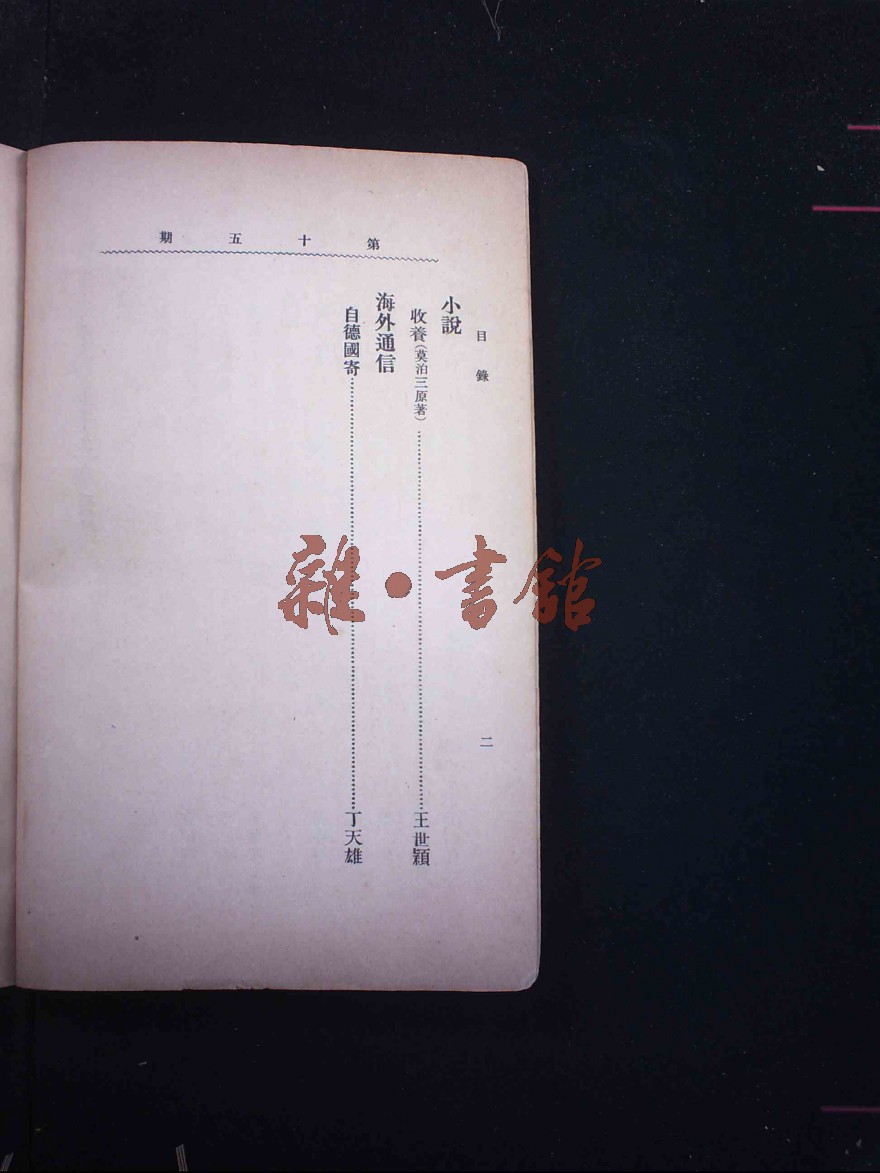 第十五期
目錄
二
小說
收養(莫泊三原著)⋯⋯⋯⋯⋯⋯⋯⋯⋯⋯王世穎
海外通信
自德國寄⋯⋯⋯⋯⋯⋯⋯⋯⋯⋯丁天雄
雜·書館